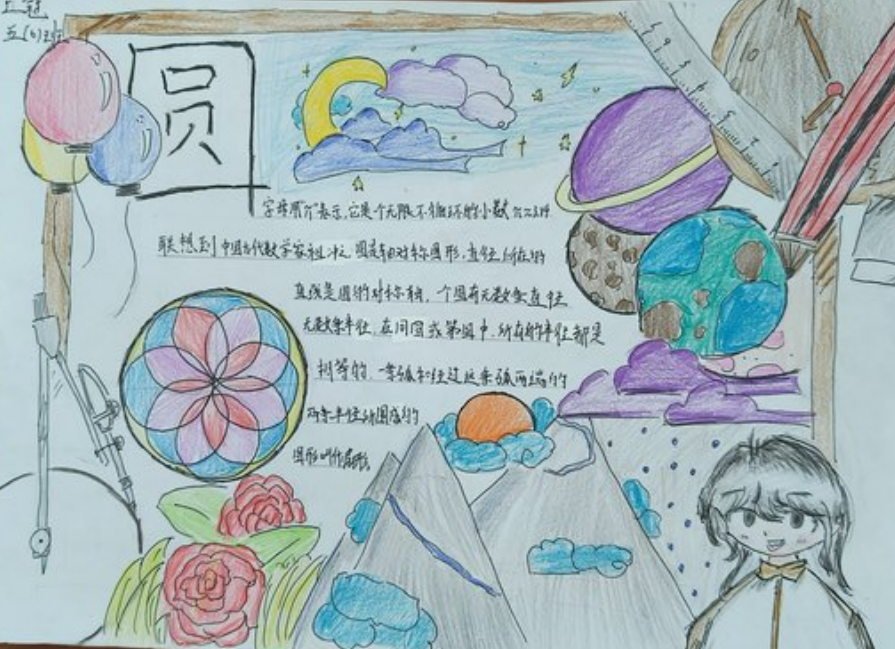 五(6)班
圆
字母用"π"表示,它是个无限不循环的小数 π≈3.14
联想到中国古代数学家祖冲之 圆是轴对称图形,直径所在的
直线是圆的对称轴,一个圆有无数条直径
无数条半径,在同圆或等圆中,所有的半径都是
相等的,一条弧和经过这条弧两端的
两条半径所围成的
图形叫作扇形